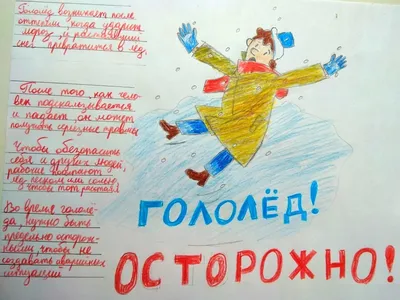 Гололёд возникает после
оттепели, когда ударит
мороз, и растаявший
снег превратится в лёд.
После того, как чело-
век подскальзывается
и падает, он может
получить серьезные травмы
Чтобы обезопасить
себя и других людей,
рабочие посыпают
лёд песком или солью
чтобы тот растаял
Во время гололё-
да, нужно быть
предельно осторож-
чтобы не
создавать аварийных
ситуаций
ГОЛОЛЁД!
ОСТОРОЖНО!